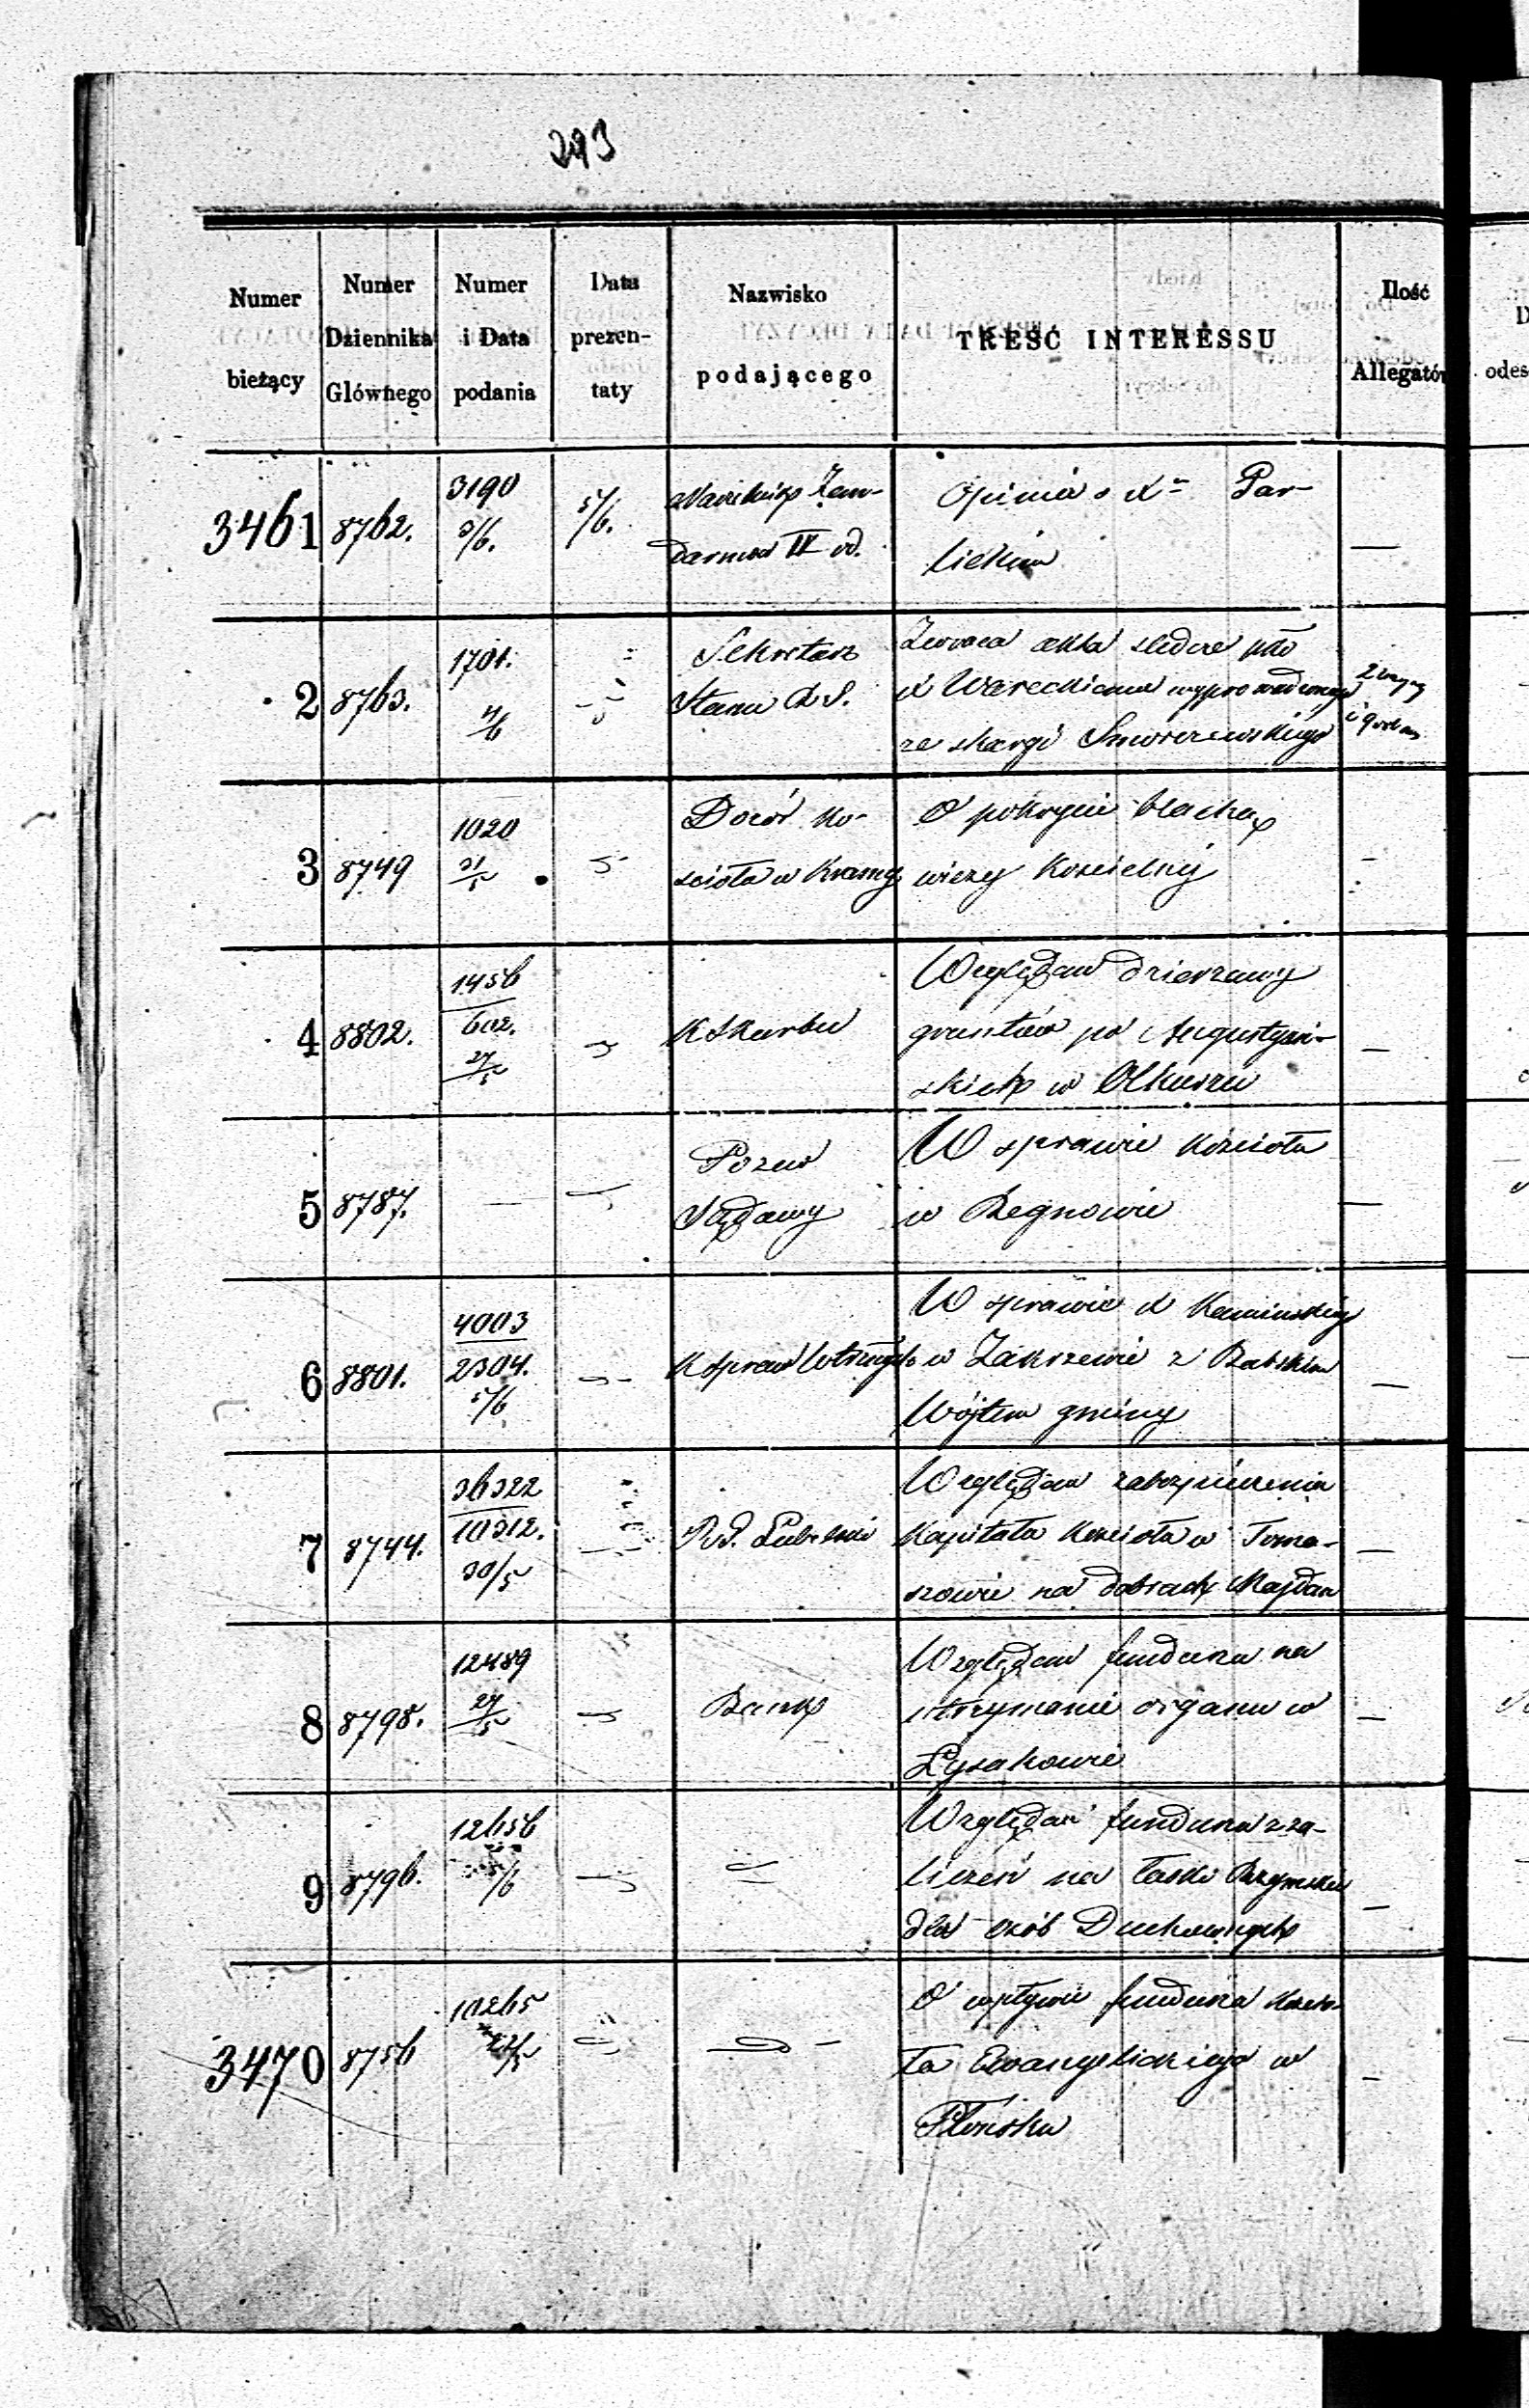 293
Numer bieżący | Numer Dziennika Głównego | Numer i Data podania | Data prezentaty | Nazwisko podającego | TREŚĆ INTERESSU | Ilość Allegatów
3461 | 8762. | 3190 3/6. | 5/6. | Naczelnik Żan-
darmów II od. | Opinia o Xn Par-
lickim | —
2 | 8763. | 1701. 4/6 | Sekretarz
Stanu K.S. | Zwraca akta śledcze pko
X Wareckiemu wyprowadzone
ze skargi
3 | 8749 | 1020 31/5 | Dozór Ko-
ścioła w | O pokrycie blachą
wieży Kościelnej | -
4 | 8802. | 1456 602. 27/5 | K Skarbu | Względem dzierżawy
gruntów po Augustyań-
skich w Olkuszu | —
5 | 8787. | — | Pozew
Sądowy | W sprawie Kościoła
w Regnowie | —
6 | 8801. | 4003 2304. 5/6 | K Spraw Wewnętr. | W sprawie X Kamińskiego
w Zakrzewie z Babskim
Wójtem gminy | —
7 | 8744. | 36322 10312. 30/5 | R.G. Lubelski | Względem zabezpieczenia
Kapitału Kościoła w Toma-
szowie na dobrach Majdan | —
8 | 8798. | 12489 27/5 | Bank | Względem funduszu na
utrzymanie organu w
Łysakowie | —
9 | 8796. | 12656 /6 | Względem funduszu z za-
liczeń na
dla osób Duchownych | —
3470 | 8756 | 10265 | O wpływie funduszu Kościo-
ła Ewangelickiego w
Płońsku | -